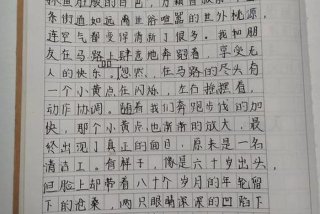 条街道如远离世俗喧嚣的世外桃源,
连空气都变得清新了很多。我和朋
友在马路上肆意地奔跑着,享受无
人的快乐。忽然,在马路的尽头有
一个小黄点在闪烁,左右摇摆着,
动作协调。随着我们奔跑步伐的加
快,那个小黄点也渐渐的放大,最
终出现了真正的面目,原来是一名
清洁工。看样子,像是六十岁出头,
但脸上却带着八十个岁月的年轮留
下的沧桑,两只眼睛深深的凹陷下